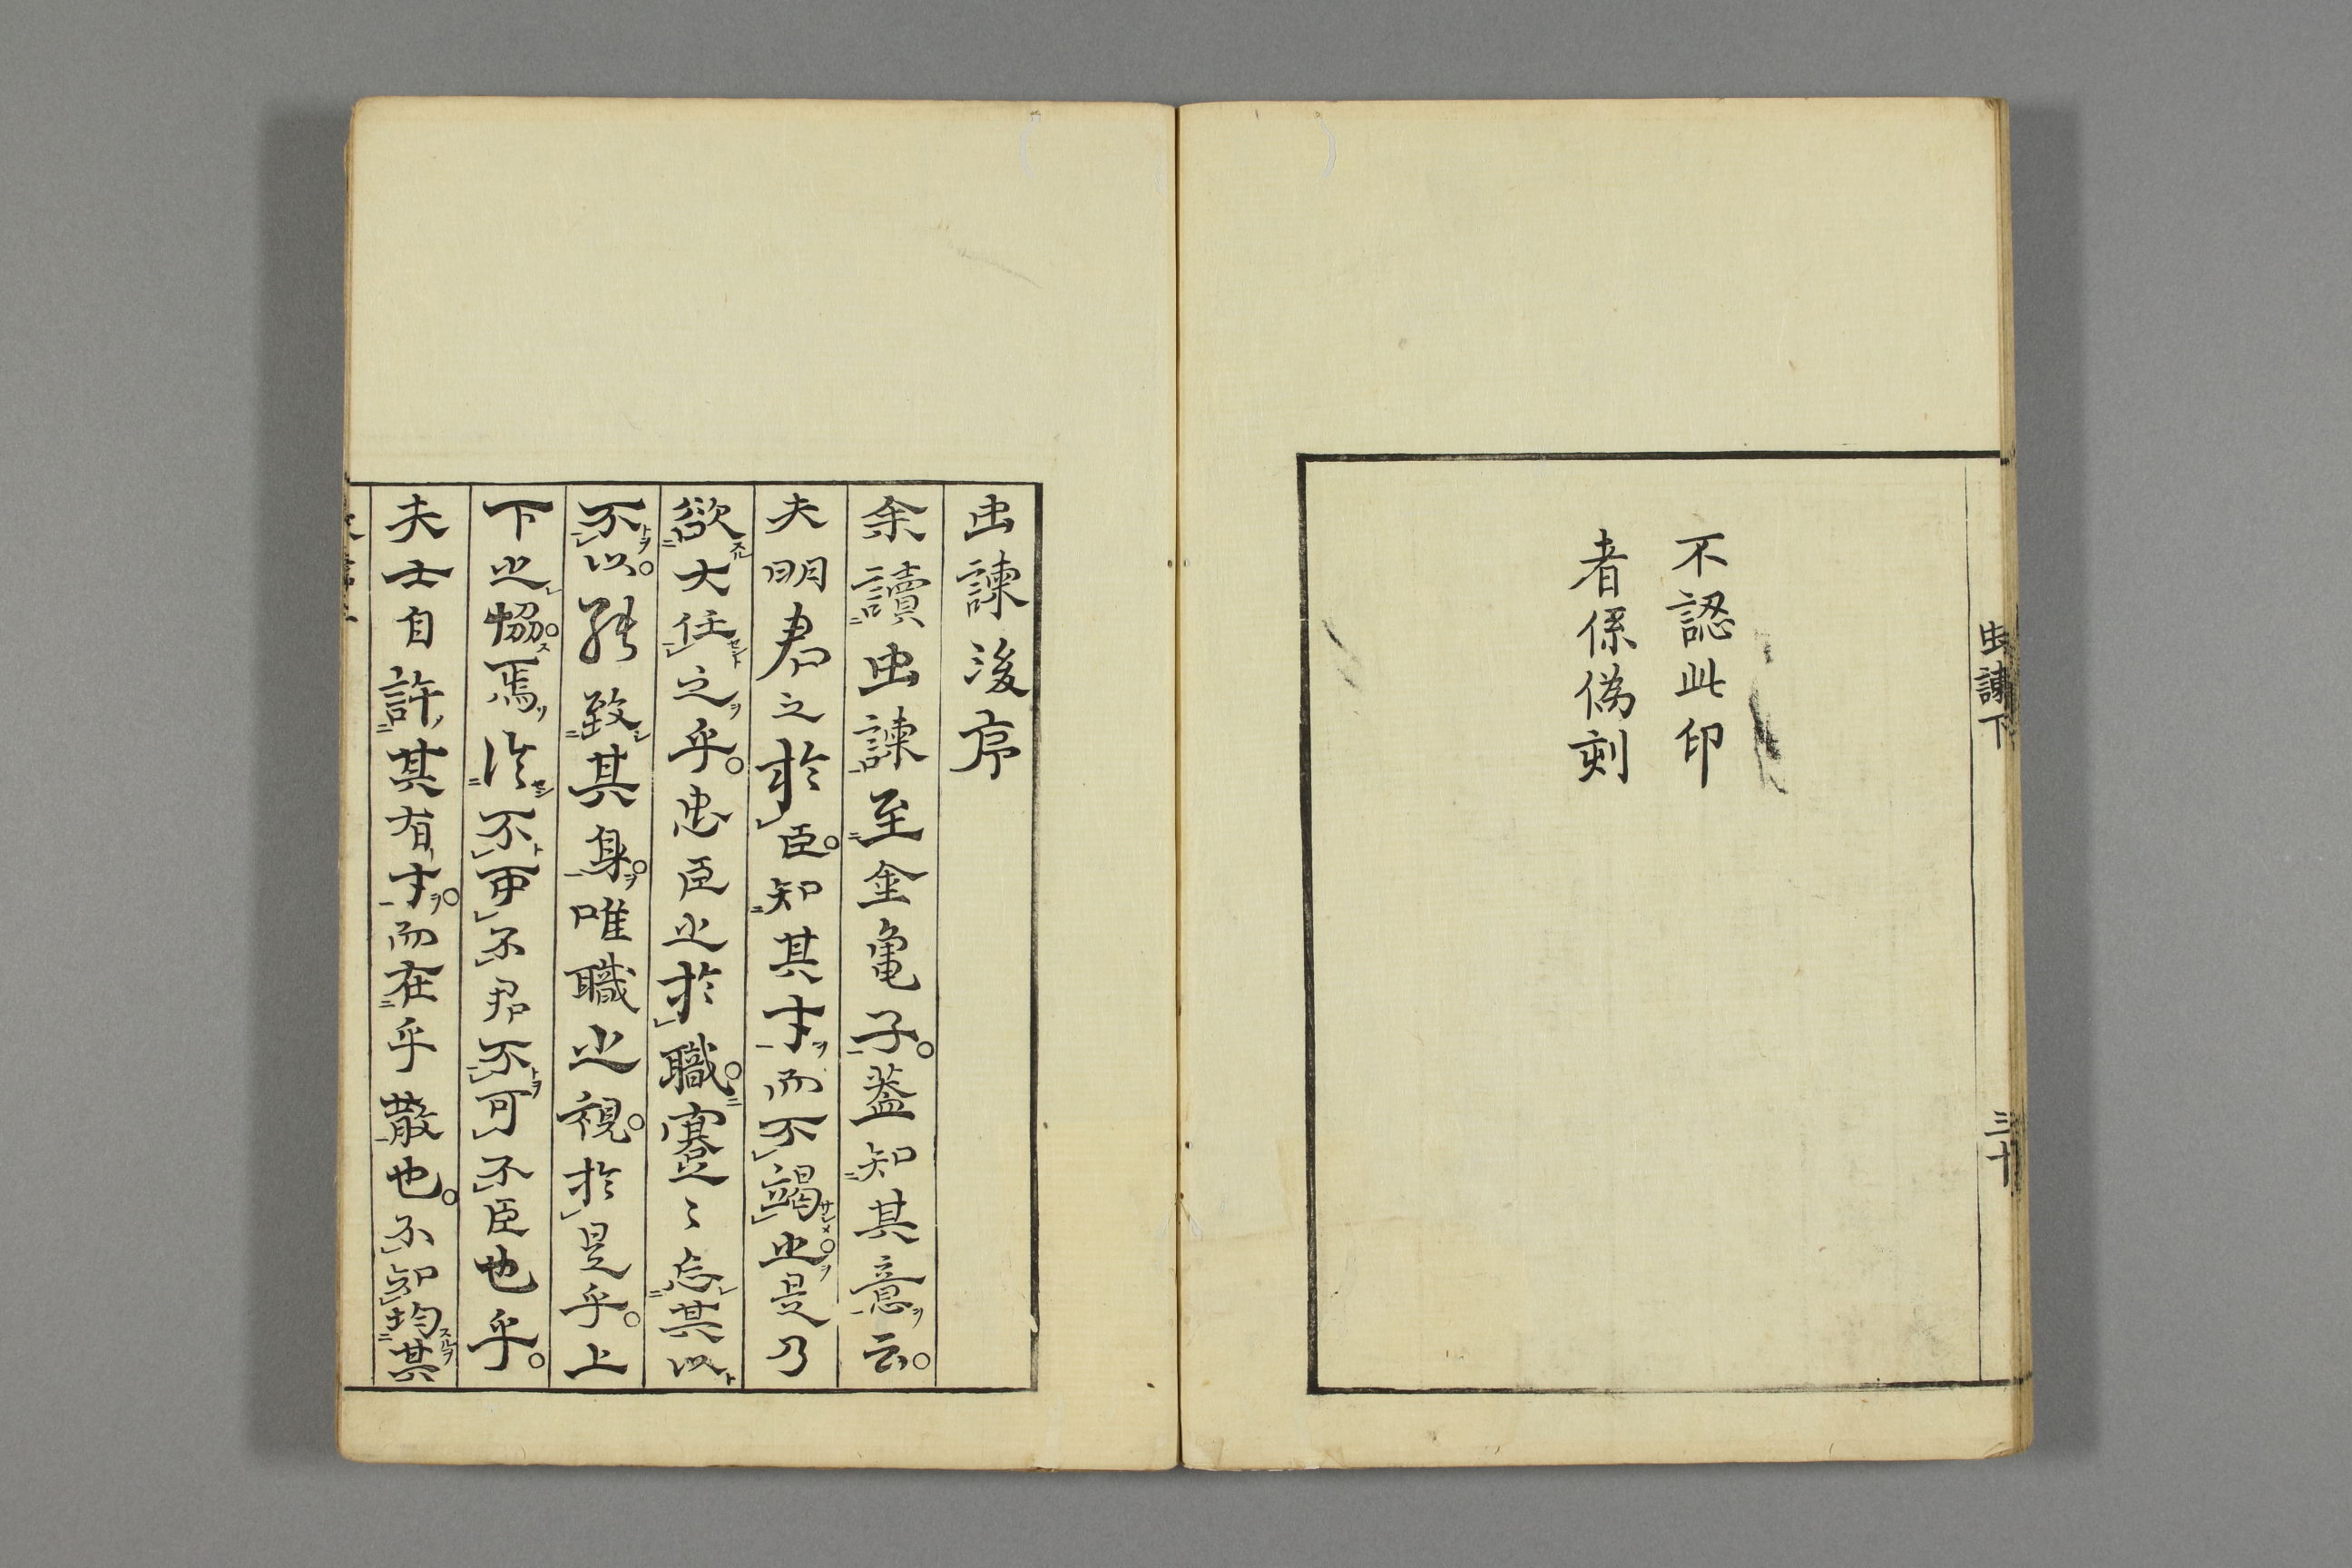 不認此印
者係偽刻
虫諫下
三十
虫諫後序
余讀虫諫至金亀子。蓋知其意云。
夫明君之於臣。知其才而不竭之。是乃
欲大任之乎。忠臣之於職。蹇〻忘其以
不以。能致其身。唯職之視。於是乎。上
下之恊。焉
不君不可不臣也乎。
夫士自許其有才。而在乎散也。不知均其